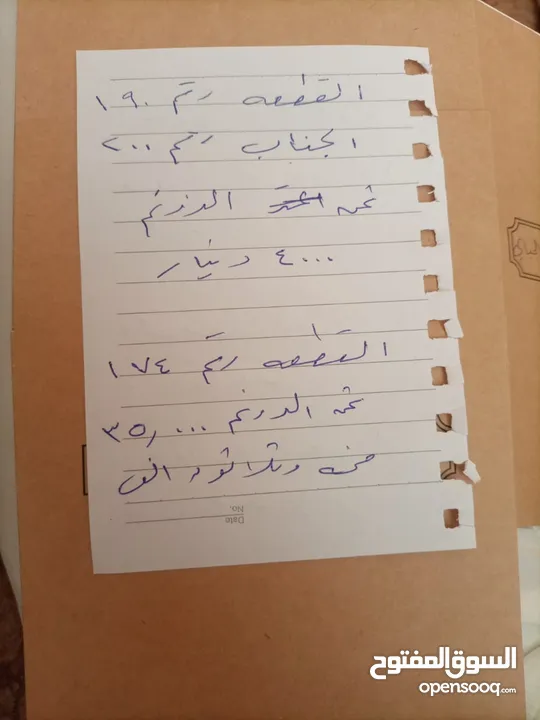 القطعه رقم ١٩٠
الجناب رقم ٢٠٠
ثمن الدونم
٤٠٠٠ دينار
القطعه رقم ١٧٤
ثمن الدونم ٣٥,٠٠٠
خمسه وثلاثون الف
No.
Date
السوق المفتوح
opensooq.com